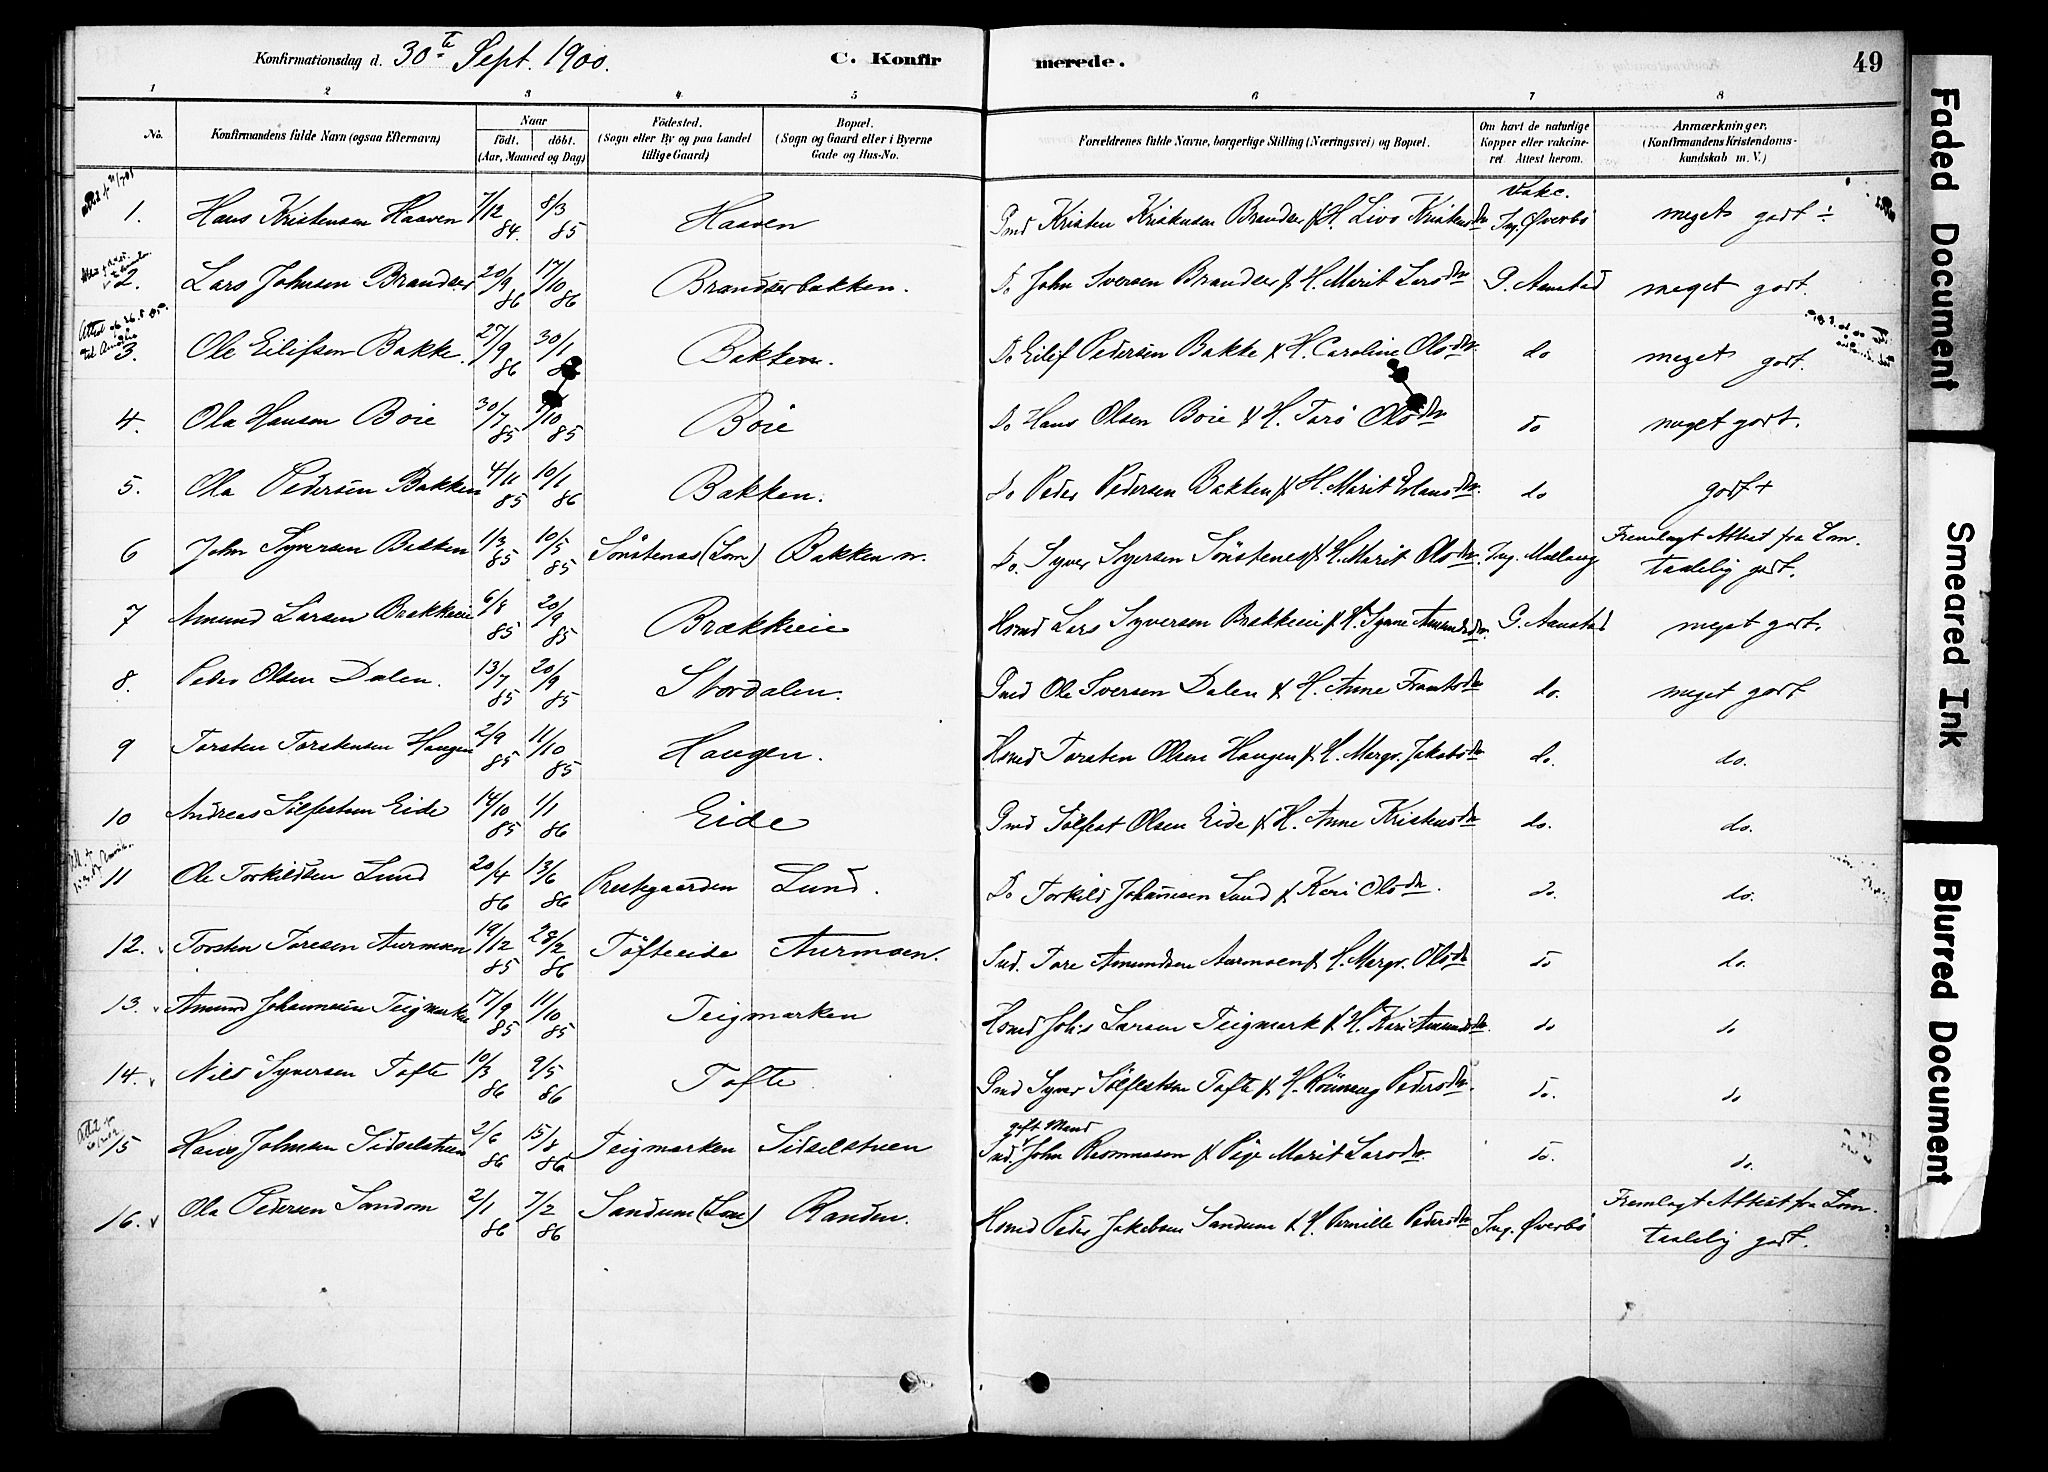 Konfirmationsdag d. 30te Sept. 1900.
C. Konfirmerede.
49
1 2 3 4 5 6 7 8
No.
Konfirmandens fulde Navn (ogsaa Efternavn)
Naar
födt. döbt.
(Aar, Maaned og Dag)
Födested.
(Sogn eller By og paa Landet tillige Gaard)
Bopæl.
(Sogn og Gaard eller i Byerne Gade og Hus-No.
Forældrenes fulde Navne, borgerlige Stilling (Næringsvei) og Bopæl.
Om havt de naturlige Kopper eller vakcineret. Attest herom.
Anmærkninger.
(Konfirmandens Kristendomskundskab m. V.)
1. Hans Kristensen Haaven 7/12 84. 8/3 85 Haaven Gmd Kristen Kristensen Brandser & H. Livo Kristensdr Vakc. Ing. Øverbö meget godt ÷
2. Lars Johnsen Brandser 20/9 86 17/10 86 Brandserbakken. Do John Iversen Brandser & H. Marit Larsdr G. Aanstad meget godt.
3. Ole Eilifsen Bakke. 27/9 86 30/1 Bakken. Do Eilif Pedersen Bakke & H. Caroline Olsdr. do meget godt.
4. Ola Hansen Böie 30/7 85 /10 85 Böie Do Hans Olsen Böie & H. Torö Olsdr do meget godt.
5. Ola Pedersen Bakken 4/11 85 10/1 86 Bakken. Do Peder Pedersen Bakken & H. Marit Erlansdr. do godt +
6 John Syversen Bakken 1/3 85 10/5 85 Sönstenes (Lom) Bakken m. Do. Syver Syversen Sönstenes & H. Marit Olsdr. Ing. Mælang Fremlagt Attest fra Lom.
taalelig godt.
7 Amund Larsen Brækkeeie 6/8 85 20/9 85 Brækkeeie Hsmd Lars Syversen Brækkeeie & H. Synne Amundsdr. G. Aanstad meget godt.
8. Peder Olsen Dalen. 13/7 85 20/9 85 Stordalen. Gmd Ole Iversen Dalen & H. Anne Frantsdr do. meget godt
9 Torsten Torstensen Haugen 2/9 85 11/10 85 Haugen. Hsmd Torsten Olsen Haugen & H. Margr. Jakobsdr do. do.
10 Andreas Sölfestsen Eide 14/10 85 1/1 86 Eide Gmd Sölfest Olsen Eide & H. Anne Kristensdr do. do.
11 Ole Torkildsen Lund 20/4 86 13/6 86 Prestegaarden Lund. Do Torkild Johannesen Lund & Kari Olsdr. do. do.
12. Torsten Toresen Aurmoen 19/12 85 28/2 86 Töfteeide Aurmoen. Ind. Tore Amundsen Aurmoen & H. Margr. Olsdr do do.
13. Amund Johannesen Teigmarken 17/9 85 11/10 85 Teigmarken Hsmd Johs Larsen Teigmark & H. Kari Amundsdr. do do
14. Nils Syversen Tofte 10/3 86 9/5 86 Tofte Gmd Syver Sölfestsen Tofte & H. Rönnaug Pedersdr. do. do
15 Hans Johnsen Sidselstuen 2/6 86 15/8 86 Teigmarken Sidselstuen gift Mand
Ind. John Rasmussen & Pige Marit Larsdr. do. do.
16. Ola Pedersen Sandom 2/1 86 7/2 86 Sandum (Lom) Randen. Hsmd Peder Jakobsen Sandum & H. Pernille Pedersdr Ing. Øverbö Fremlagt Attest fra Lom.
taalelig godt.
Faded Document
Smeared Ink
Blurred Document